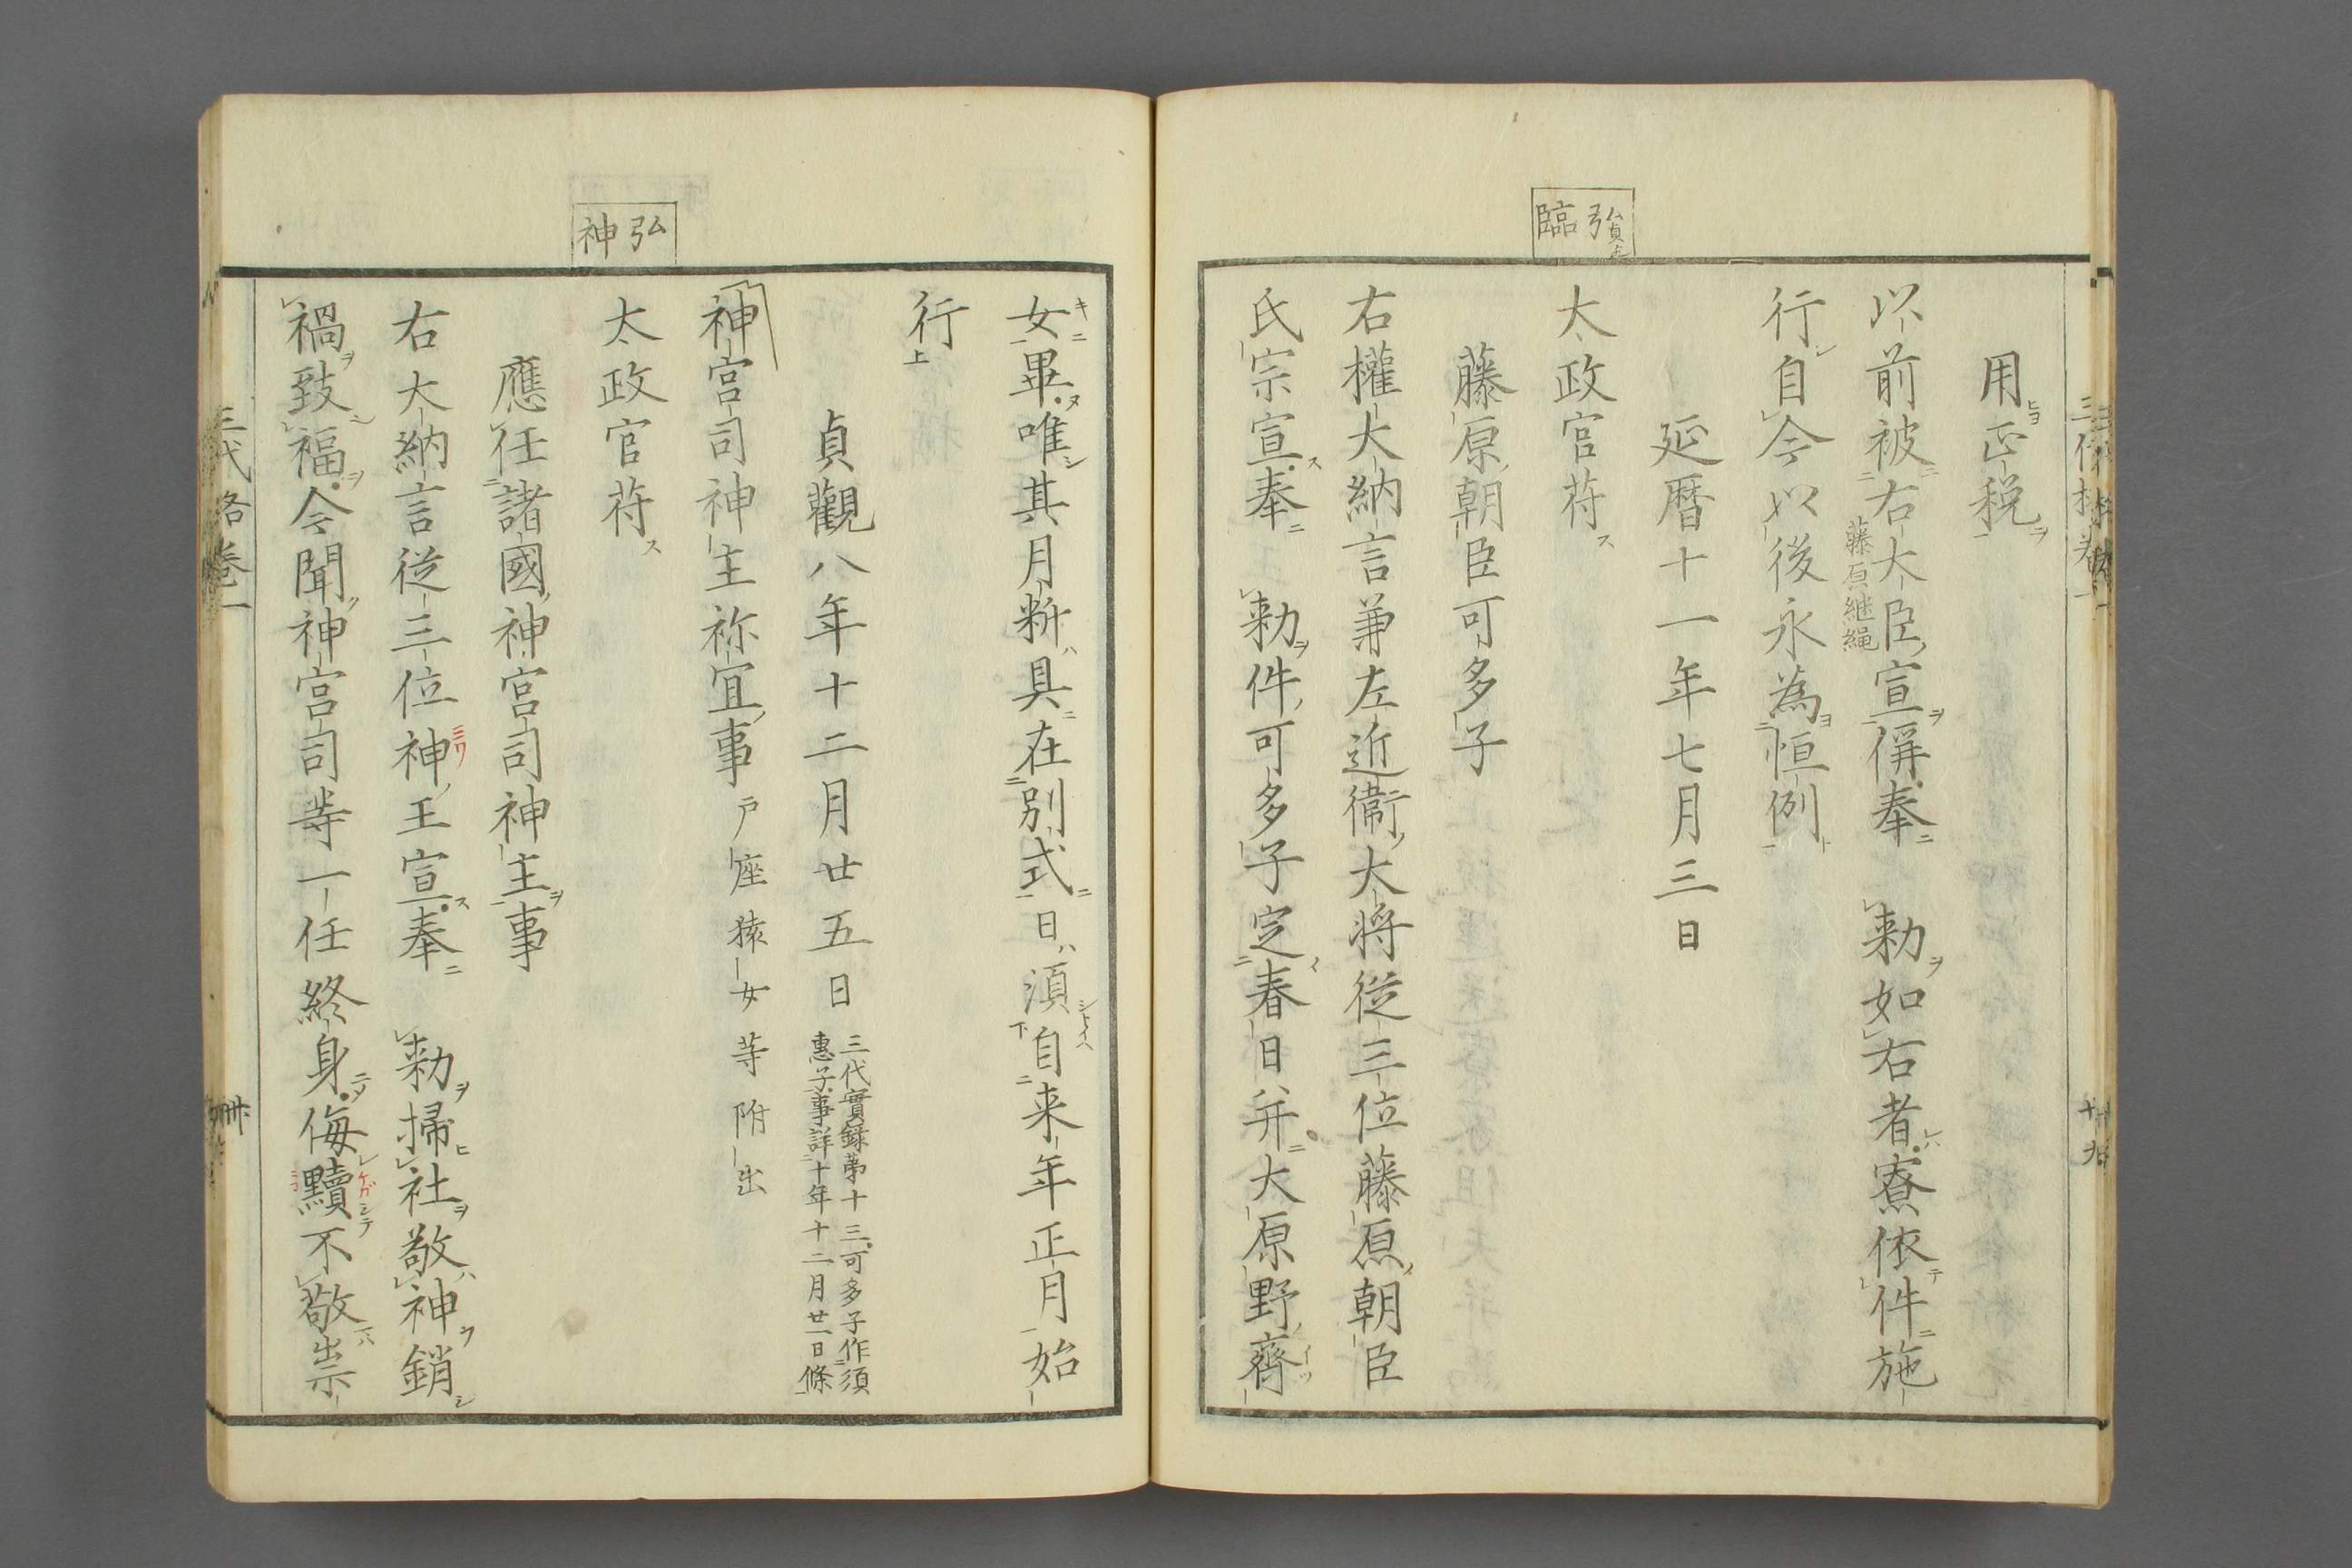 弘貞
臨
用正税
以前被右大臣宣偁奉　勅如右者寮依件施
藤原継縄
行自今以後永為恒例
延暦十一年七月三日
太政官苻
藤原朝臣可多子
右權大納言兼左近衞大将従三位藤原朝臣
氏宗宣奉　勅件可多子定春日并大原野齋
弘
神
女畢唯其月粁具在別式日須自来年正月始
行
貞觀八年十二月廿五日
三代實録第十三可多子作須
惠子事詳十年十二月廿一日條
神宮司神主祢宜事戸座猿女等附出
太政官苻
應任諸國神宮司神主事
右大納言従三位神王宣奉　勅掃社敬神銷
禍致福今聞神宮司等一任終身侮黷不敬祟
三代格巻一